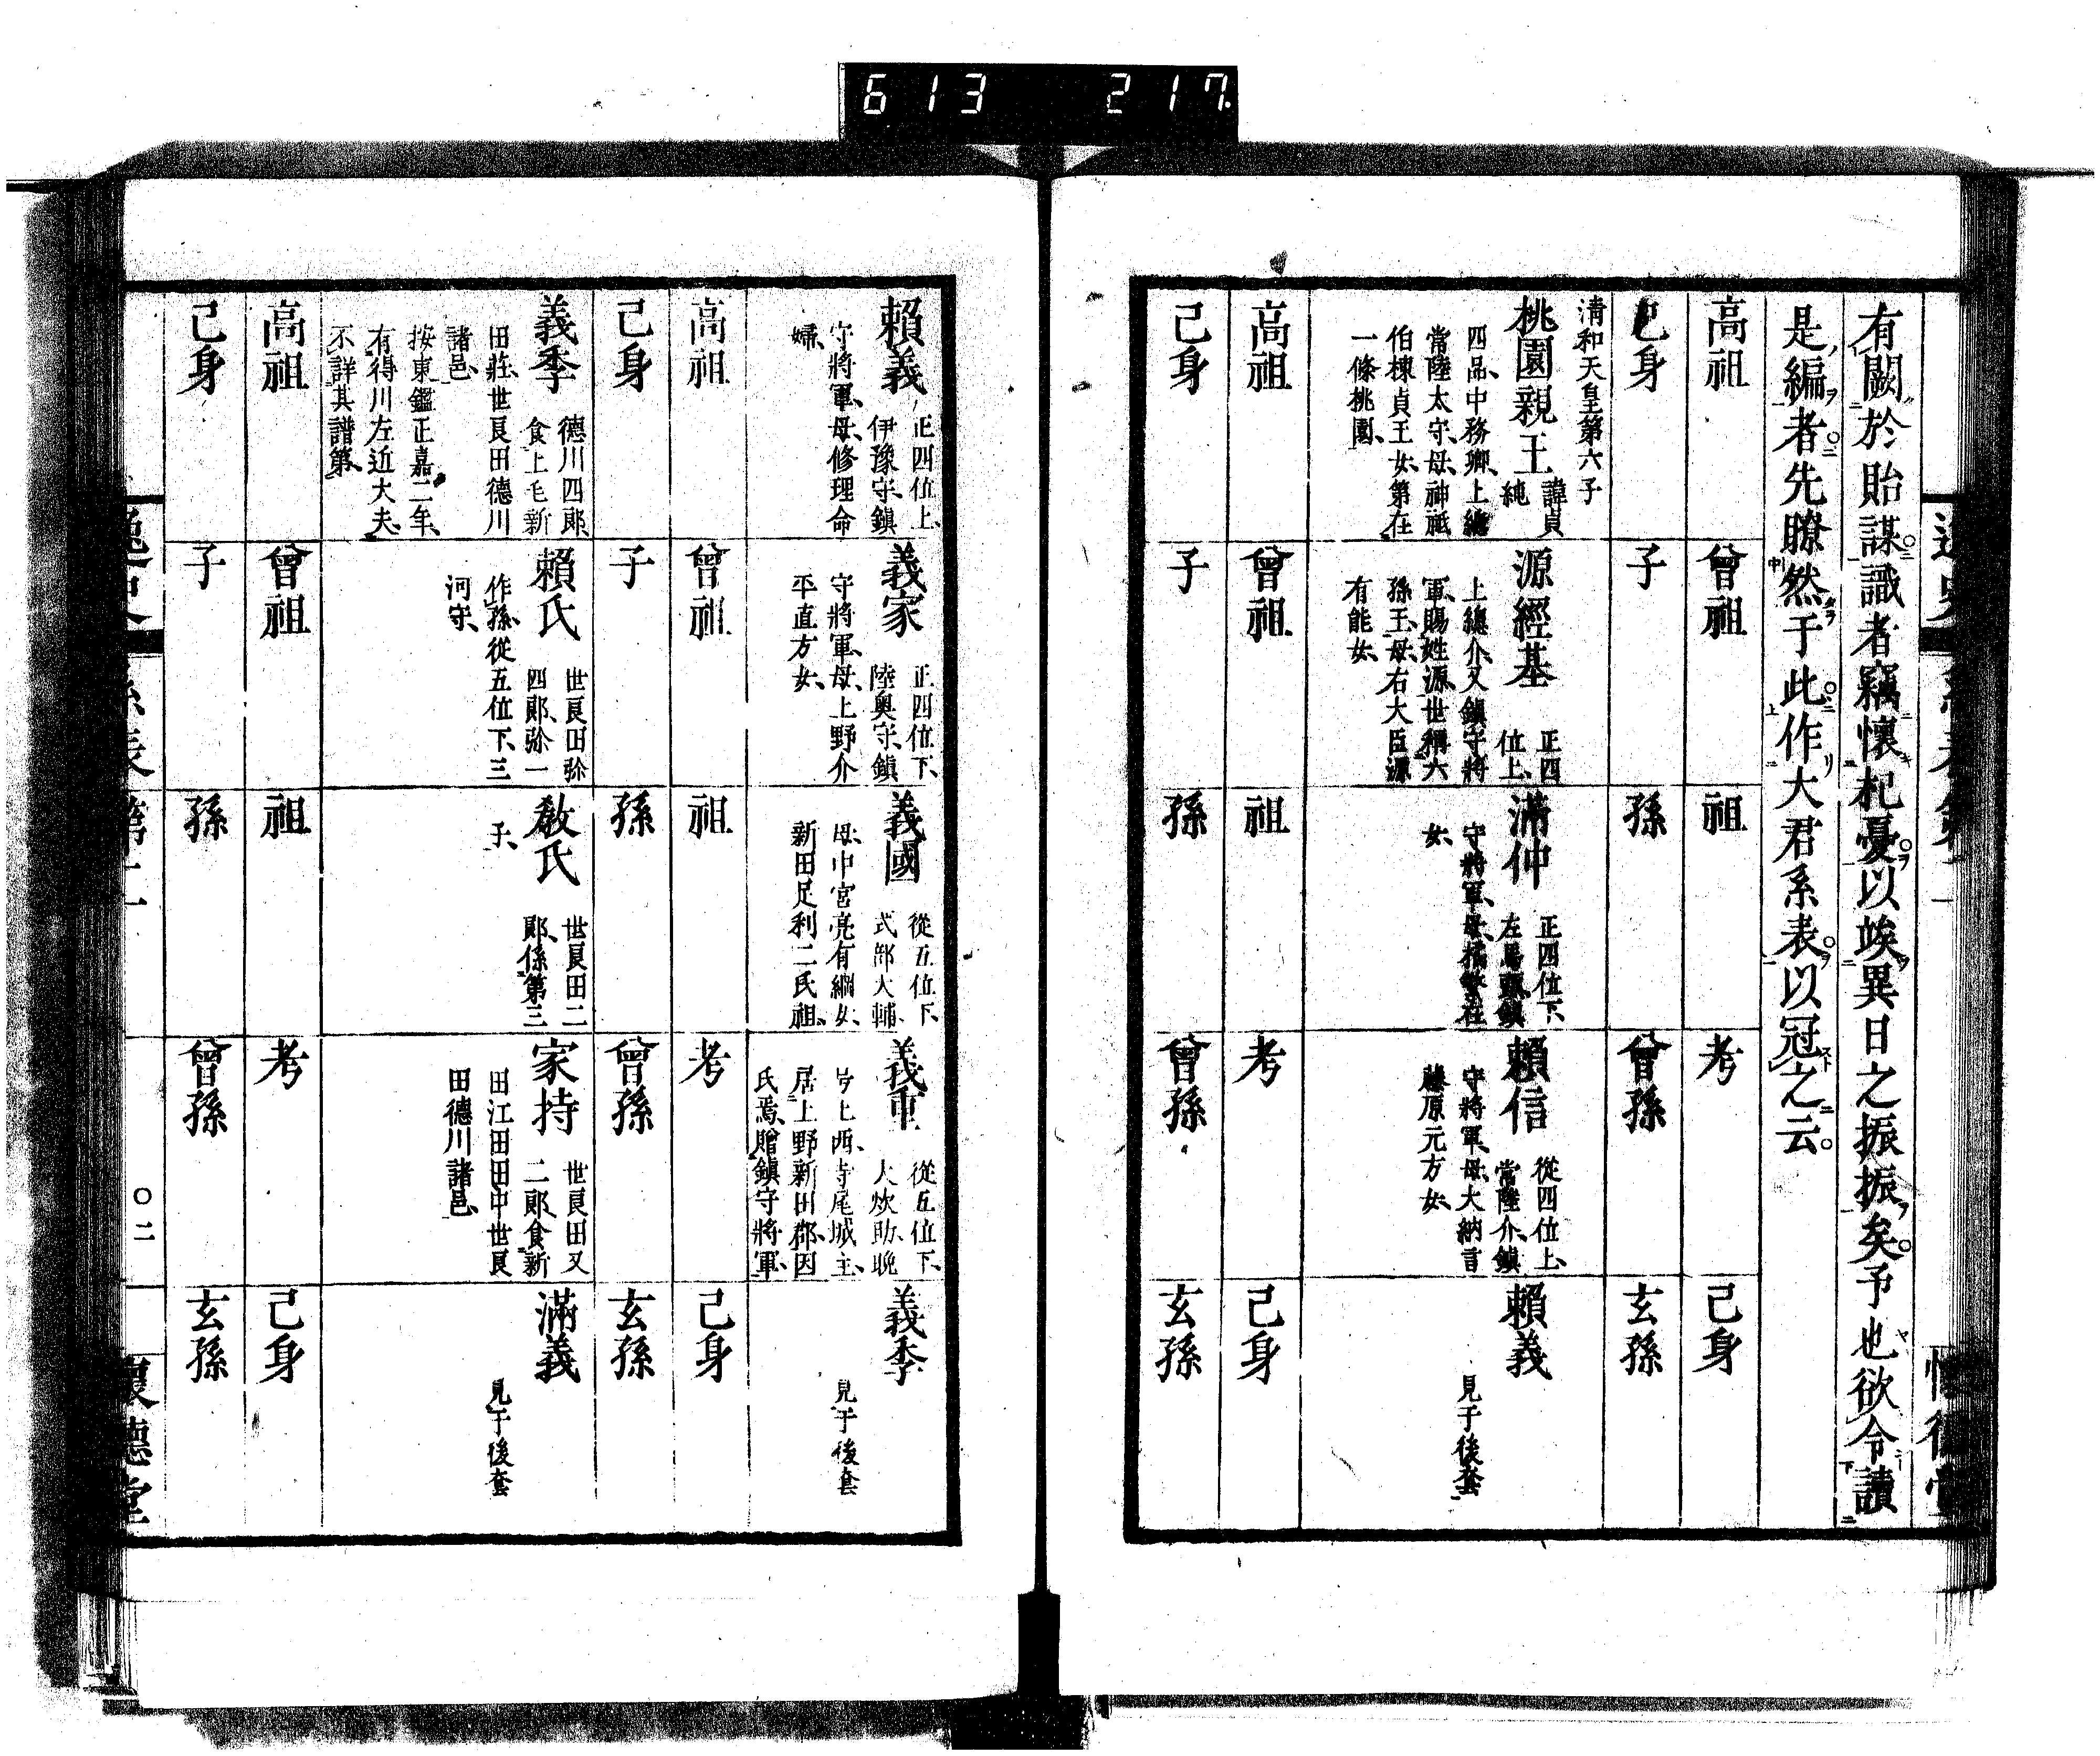 613 217
有闕於貽謀識者竊懷杞憂以竢異日之振振矣予也欲令讀
是編者先瞭然于此作大君系表以冠之云
高祖
曾祖
祖
考
己身
己身
子
孫
曾孫
玄孫
清和天皇第六子
桃園親王
諱貞
純
四品、中務卿、上總
常陸太守、母、神祗
伯棟貞王女、第在
一條桃園、
源經基
正四
位上、
上總介、又鎮守將
軍、賜姓源、世稱六
孫王、母、右大臣源
有能女、
滿仲
正四位下、
左馬頭、鎮
守將軍、母、橘繁在
女、
賴信
從四位上、
常陸介、鎮
守將軍、母、大納言
藤原元方女、
賴義
見于後套
高祖
曾祖
祖
考
己身
己身
子
孫
曾孫
玄孫
賴義
正四位上、
伊豫守、鎮
守將軍、母、修理命
婦、
義家
正四位下、
陸奧守、鎮
守將軍、母、上野介
平直方女、
義國
從五位下、
式部大輔、
母、中宮亮有綱女、
新田足利二氏祖、
義重
從五位下、
大炊助、晩
号上西、寺尾城主、
居上野新田郡、因
氏焉、贈鎮守將軍、
義季
見于後套
高祖
曾祖
祖
考
己身
己身
子
孫
曾孫
玄孫
義季
德川四郎、
食上毛新
田莊、世良田德川
諸邑、
按東鑑正嘉二年、
有得川左近大夫、
不詳其譜第、
賴氏
世良田弥
四郎、弥一
作孫、從五位下、三
河守、
教氏
世良田二
郎、係第三
子、
家持
世良田又
二郎、食新
田江田田中世良
田德川諸邑、
滿義
見于後套
高祖
曾祖
祖
考
己身
己身
子
孫
曾孫
玄孫
逸史 系表第一 〇二 懷德堂